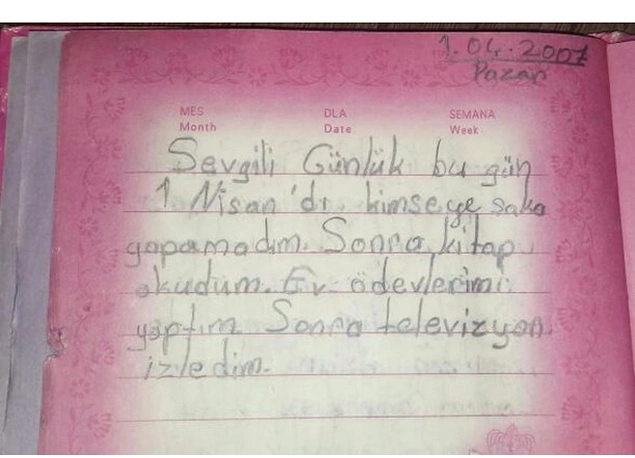 1.04.2007
Pazar
MES DLA SEMANA
Month Date Week
Sevgili Günlük bu gün
1 Nisan'dı kimseye şaka
yapamadım. Sonra kitap
okudum. Ev ödevlerimi
yaptım Sonra televizyon
izledim.